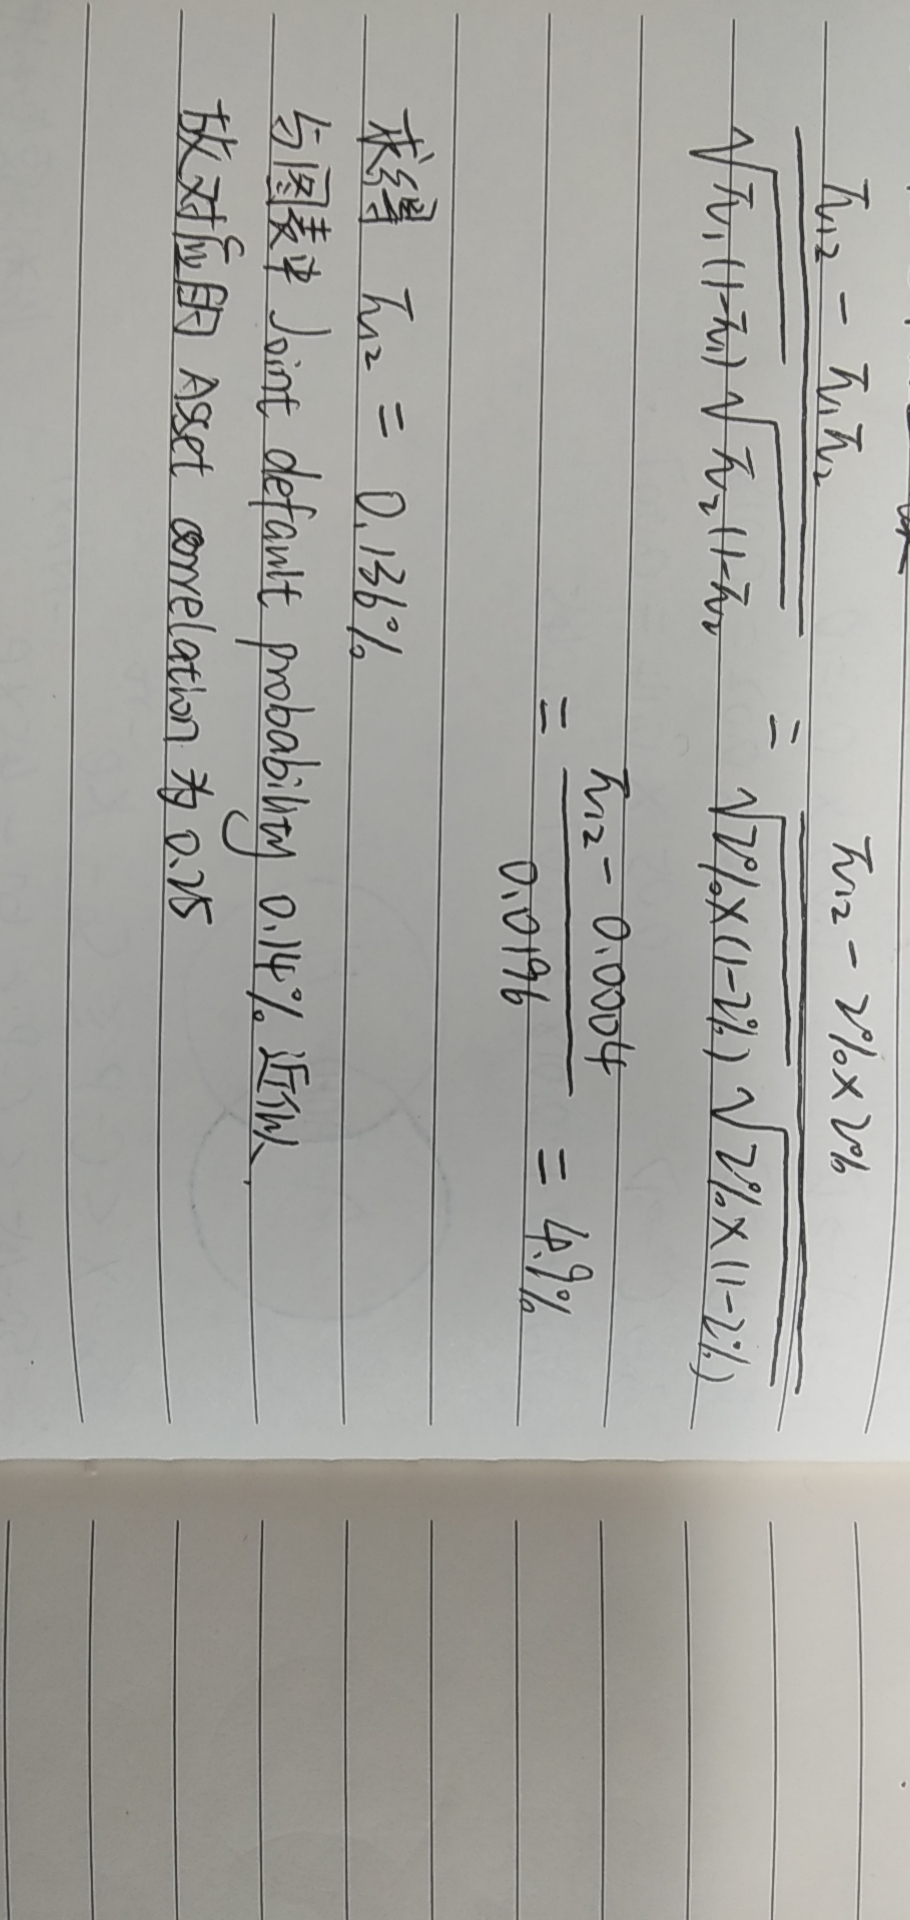 π₁₂ - π₁π₂ / √π₁(1-π₁) √π₂(1-π₂ = π₁₂ - 2%×2% / √2%×(1-2%) √2%×(1-2%)
= π₁₂ - 0.0004 / 0.0196 = 4.9%
求得 π₁₂ = 0.136%
与图表中 Joint default probability 0.14% 近似,
故对应的 Asset correlation 为 0.25